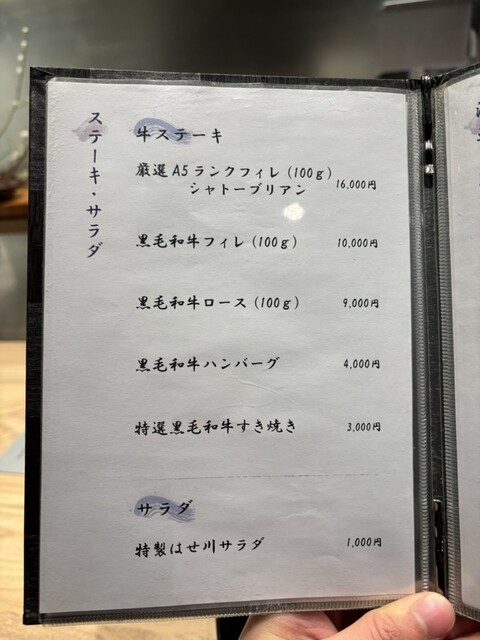 ステーキ・サラダ
牛ステーキ
厳選A5ランクフィレ(100g)
シャトーブリアン 16,000円
黒毛和牛フィレ(100g) 10,000円
黒毛和牛ロース(100g) 9,000円
黒毛和牛ハンバーグ 4,000円
特選黒毛和牛すき焼き 3,000円
サラダ
特製はせ川サラダ 1,000円